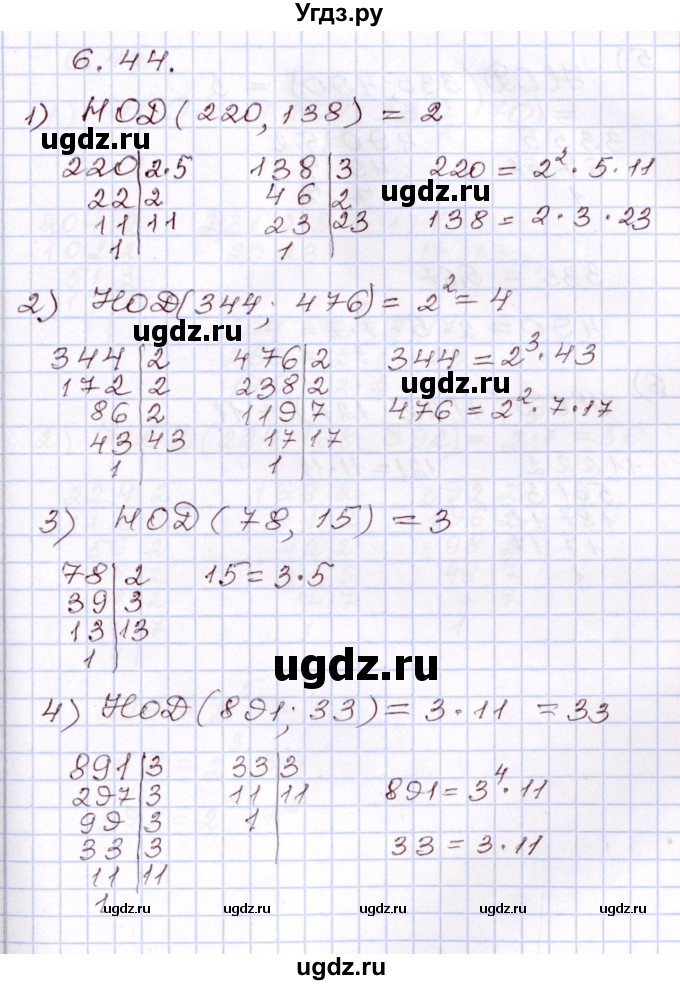 Угдз.ру
6.44.
1) НОД(220,138) = 2
ugdz.ru
220|2·5 138|3 220 = 2²·5·11
22|2 46|2 ugdz.ru
11|11 23|23 138 = 2·3·23
1 1
2) НОД(344; 476) = 2² = 4
ugdz.ru
344|2 476|2 344 = 2³·43
172|2 238|2 ugdz.ru
86|2 119|7 476 = 2²·7·17
43|43 17|17
1 1
3) НОД(78,15) = 3
78|2 15 = 3·5
39|3
13|13
1
ugdz.ru
4) НОД(891; 33) = 3·11 = 33
891|3 33|3 891 = 3⁴·11
297|3 11|11
99|3 1
33|3 33 = 3·11
11|11
1
ugdz.ru ugdz.ru ugdz.ru ugdz.ru ugdz.ru
ugdz.ru